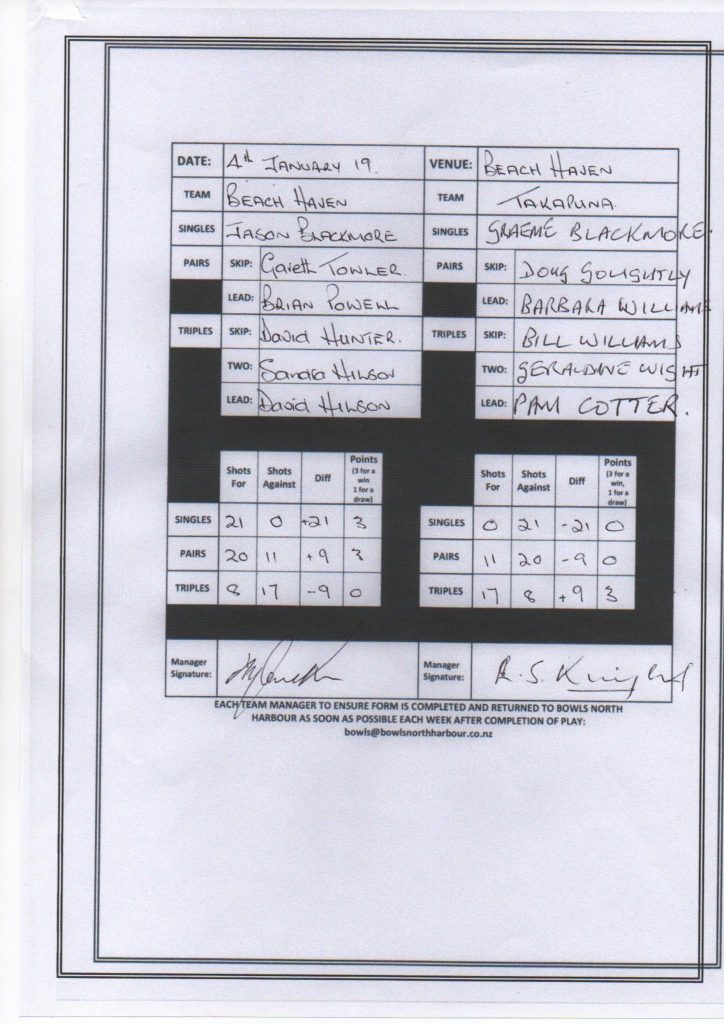 DATE: 4th JANUARY 19. VENUE: BEACH HAVEN
TEAM BEACH HAVEN TEAM TAKAPUNA
SINGLES JASON BLACKMORE SINGLES GRAEME BLACKMORE.
PAIRS SKIP: Gareth TOWLER PAIRS SKIP: DOUG GOLIGHTLY
LEAD: BRIAN POWELL LEAD: BARBARA WILLIAMS
TRIPLES SKIP: David HUNTER. TRIPLES SKIP: BILL WILLIAMS
TWO: Sandra HILSON TWO: GERALDINE WIGHT
LEAD: David HILSON LEAD: PAM COTTER.
Shots For Shots Against Diff Points (3 for a win 1 for a draw) Shots For Shots Against Diff Points (3 for a win, 1 for a draw)
SINGLES 21 0 +21 3 SINGLES 0 21 -21 0
PAIRS 20 11 +9 3 PAIRS 11 20 -9 0
TRIPLES 8 17 -9 0 TRIPLES 17 8 +9 3
Manager Signature: Manager Signature: R. S. Knight
EACH TEAM MANAGER TO ENSURE FORM IS COMPLETED AND RETURNED TO BOWLS NORTH
HARBOUR AS SOON AS POSSIBLE EACH WEEK AFTER COMPLETION OF PLAY:
bowls@bowlsnorthharbour.co.nz